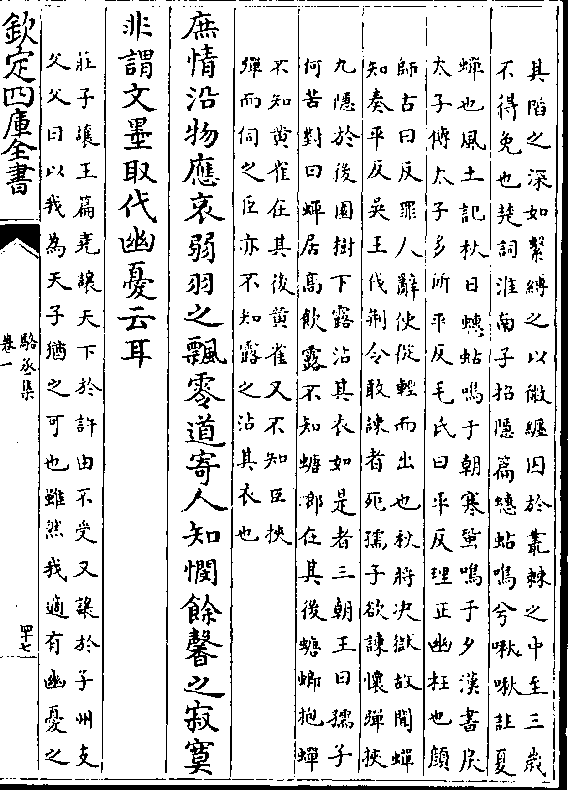 其陷之深如繫縛之以徽纆囚於叢棘之中至三歲
不得免也楚詞淮南子招隱篇蟪蛄鳴兮啾啾註夏
蟬也風土記秋日蟪蛄鳴于朝寒螿鳴于夕漢書戾
太子傳太子多所平反毛氏曰平反理正幽枉也顔
師古曰反罪人辭使從輕而出也秋將决獄故聞蟬
知奏平反吳王伐荆令敢諫者死孺子欲諫懷彈挾
九隠於後園樹下露沾其衣如是者三朝王曰孺子
何苦對曰蟬居高飲露不知螗螂在其後螗螂抱蟬
不知黄雀在其後黄雀又不知臣挾
彈而伺之臣亦不知露之沾其衣也
庶情沿物應哀弱羽之飄零道寄人知憫餘馨之寂寞
非謂文墨取代幽憂云耳
莊子讓王篇堯讓天下於許由不受又讓於子州支
父父曰以我為天子猶之可也雖然我適有幽憂之
欽定四庫全書
駱丞集
卷一
四十七